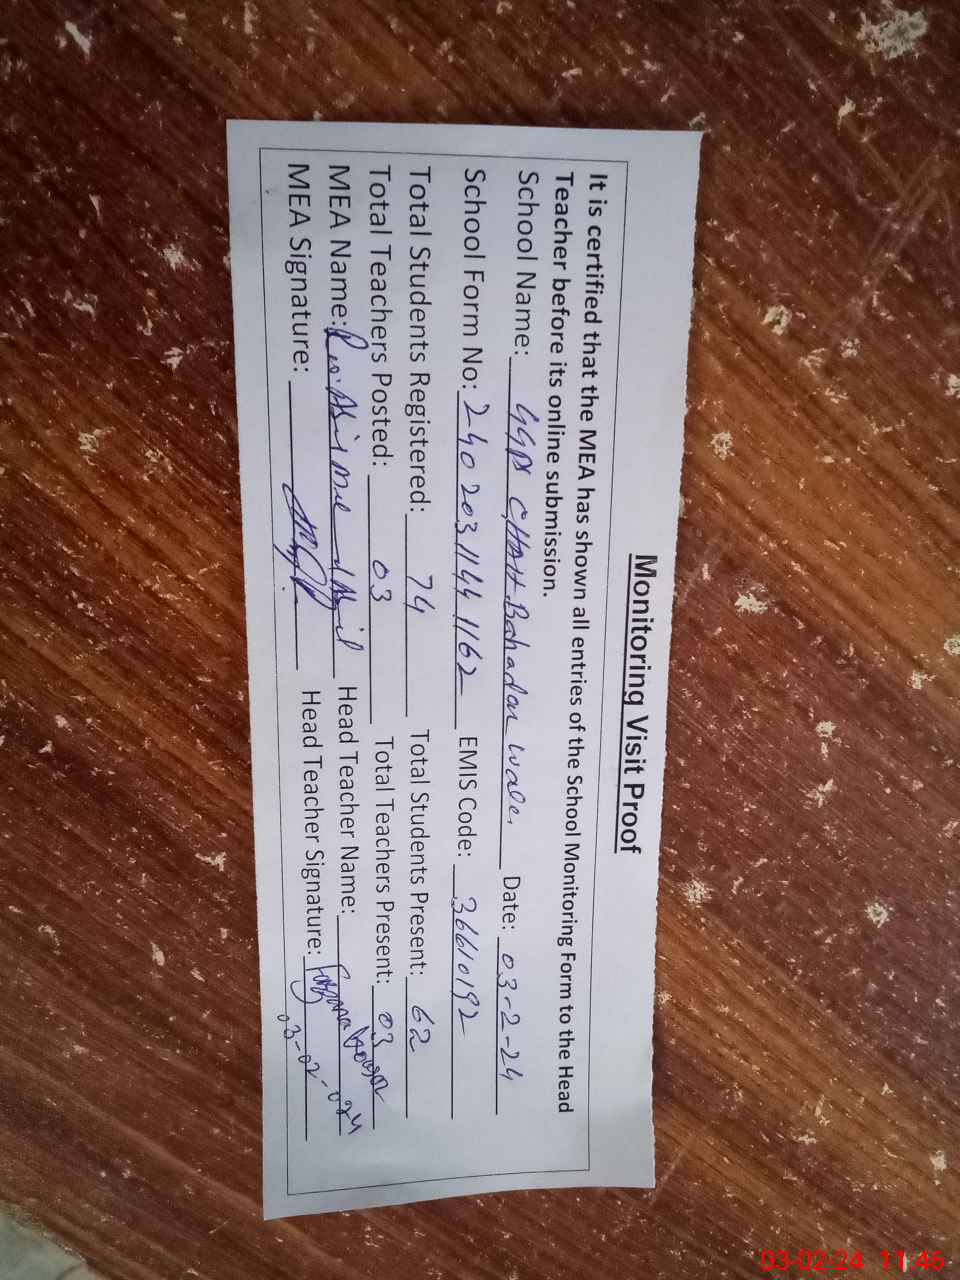 Monitoring Visit Proof
It is certified that the MEA has shown all entries of the School Monitoring Form to the Head
Teacher before its online submission.
School Name: GGPS CHAH Bahadar wala. Date: 03-2-24
School Form No: 24020311441162 EMIS Code: 36610192
Total Students Registered: 74 Total Students Present: 62
Total Teachers Posted: 03 Total Teachers Present: 03
MEA Name: Head Teacher Name:
MEA Signature: Head Teacher Signature:
03-02-024
03-02-24 11:46